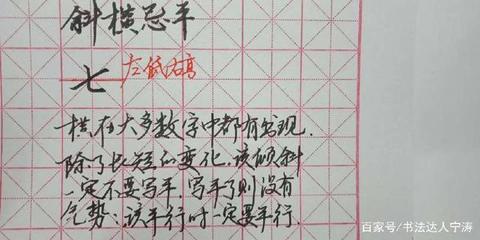 斜横忌平
七 左低右高
横在大多数字中都有出现.
除了长短的变化,该倾斜
一定不要写平,写平了则没有
气势;该平行时一定要平行.
百家号/书法达人宁涛